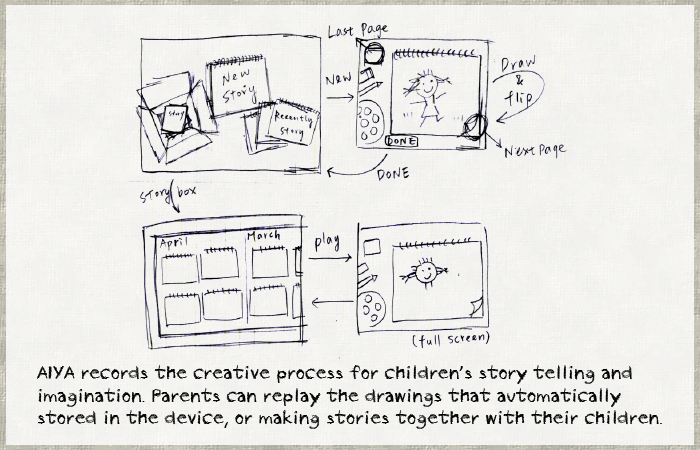 Last Page
New
Story
New
Draw
&
flip
Story
Recently
Story
DONE
Next Page
DONE
Story box
April
March
play
(full screen)
AIYA records the creative process for children's story telling and
imagination. Parents can replay the drawings that automatically
stored in the device, or making stories together with their children.